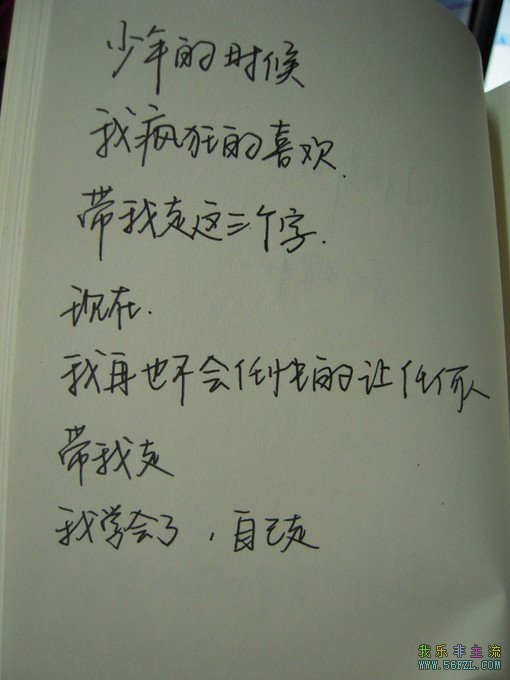 少年的时候
我疯狂的喜欢.
带我走这三个字.
现在.
我再也不会任性的让任何人
带我走
我学会了，自己走
我乐非主流
www.56FZL.com